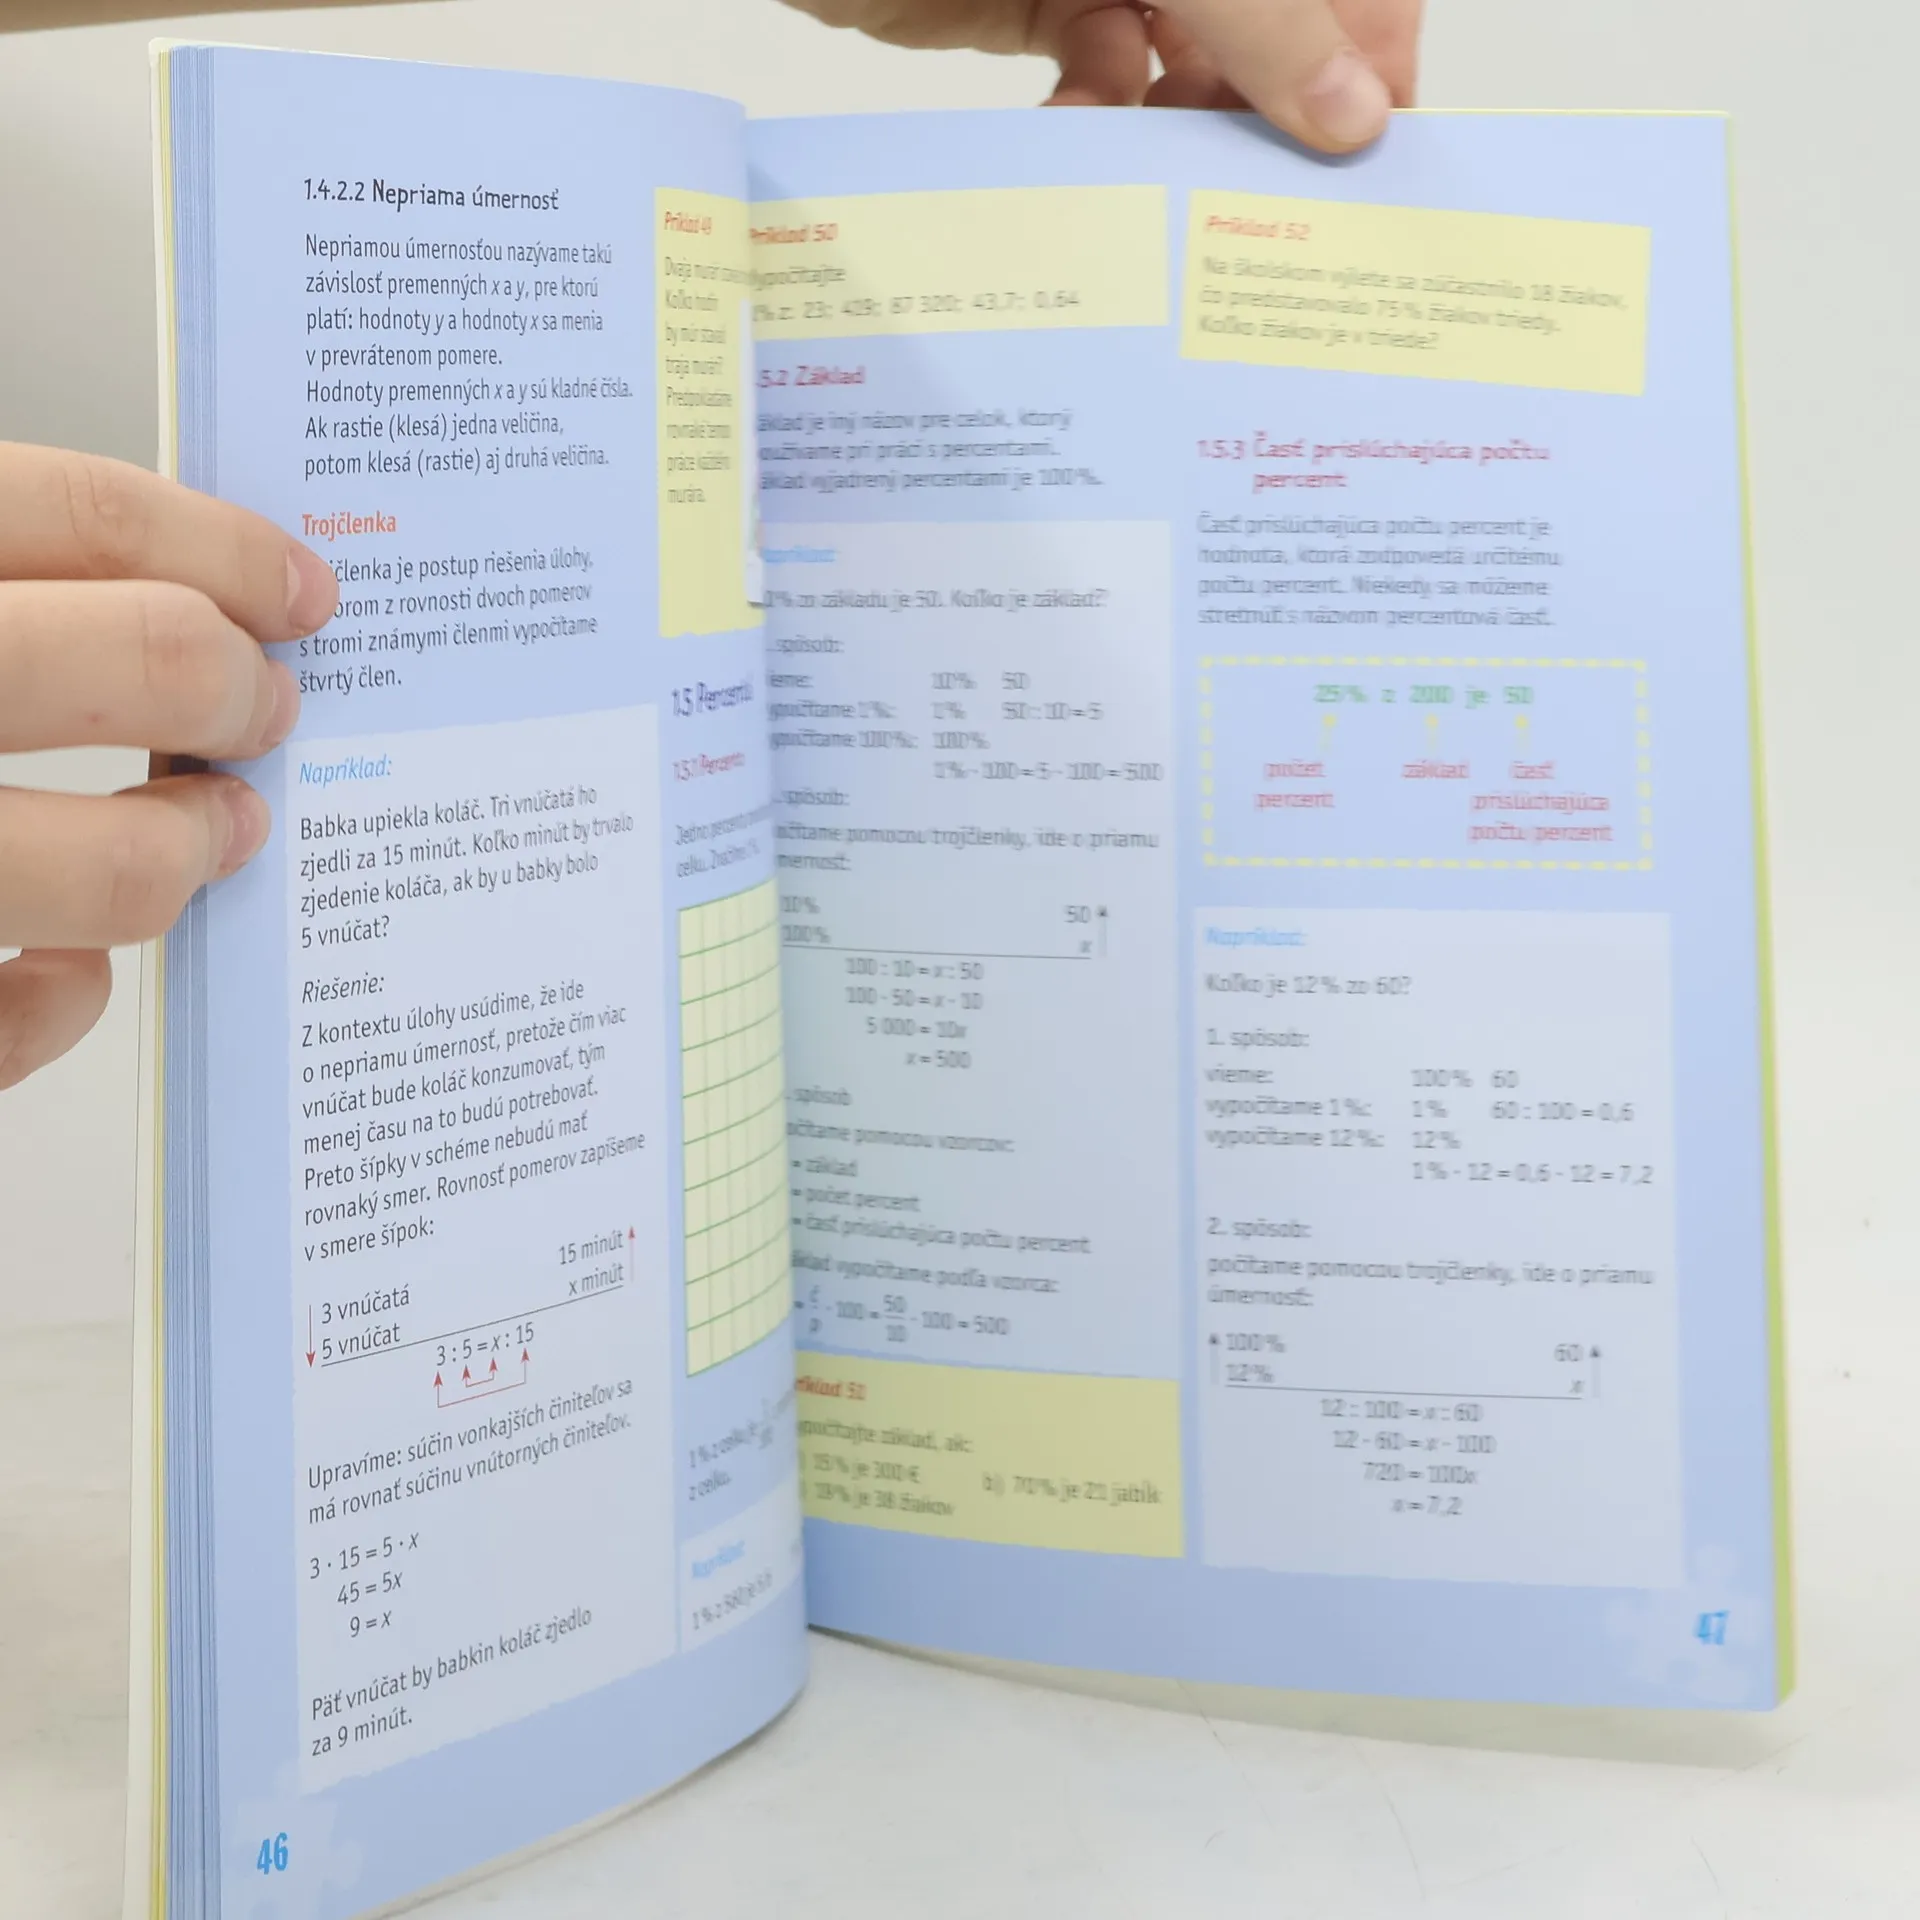 1.4.2.2 Nepriama úmernosť
Nepriamou úmernosťou nazývame takú
závislosť premenných x a y, pre ktorú
platí: hodnoty y a hodnoty x sa menia
v prevrátenom pomere.
Hodnoty premenných x a y sú kladné čísla.
Ak rastie (klesá) jedna veličina,
potom klesá (rastie) aj druhá veličina.
Trojčlenka
členka je postup riešenia úlohy,
orom z rovnosti dvoch pomerov
s tromi známymi členmi vypočítame
štvrtý člen.
Napríklad:
Babka upiekla koláč. Tri vnúčatá ho
zjedli za 15 minút. Koľko minút by trvalo
zjedenie koláča, ak by u babky bolo
5 vnúčat?
Riešenie:
Z kontextu úlohy usúdime, že ide
o nepriamu úmernosť, pretože čím viac
vnúčat bude koláč konzumovať, tým
menej času na to budú potrebovať.
Preto šípky v schéme nebudú mať
rovnaký smer. Rovnosť pomerov zapíšeme
v smere šípok:
3 vnúčatá 15 minút
5 vnúčat x minút
3 : 5 = x : 15
Upravíme: súčin vonkajších činiteľov sa
má rovnať súčinu vnútorných činiteľov.
3 · 15 = 5 · x
45 = 5x
9 = x
Päť vnúčat by babkin koláč zjedlo
za 9 minút.
46
Príklad 49
Koľko hodín
by múr stavali
traja murári?
práce každého
murára.
1.5 Percentá
1.5.1 Percento
Jedno percento
celku.
1 % z celku je
z celku.
Napríklad:
1 % z 560 je 5,6
Príklad 50
ypočítajte
% z: 23; 429; 87 320; 43,7; 0,64
.5.2 Základ
áklad je iný názov pre celok, ktorý
oužívame pri práci s percentami.
áklad vyjadrený percentami je 100 %.
apríklad:
0 % zo základu je 50. Koľko je základ?
. spôsob:
ieme: 10 % 50
ypočítame 1 %: 1 % 50 : 10 = 5
ypočítame 100 %: 100 %
1 % · 100 = 5 · 100 = 500
. spôsob:
očítame pomocou trojčlenky, ide o priamu
mernosť:
10 % 50
100 % x
100 : 10 = x : 50
100 · 50 = x · 10
5 000 = 10x
x = 500
. spôsob
očítame pomocou vzorcov:
= základ
= počet percent
= časť prislúchajúca počtu percent
áklad vypočítame podľa vzorca:
= č/p · 100 = 50/10 · 100 = 500
ríklad 51
ypočítajte základ, ak:
) 15 % je 300 € b) 70 % je 21 jabĺk
) 19 % je 38 žiakov
Príklad 52
Na školskom výlete sa zúčastnilo 18 žiakov,
čo predstavovalo 75 % žiakov triedy.
Koľko žiakov je v triede?
1.5.3 Časť prislúchajúca počtu
percent
Časť prislúchajúca počtu percent je
hodnota, ktorá zodpovedá určitému
počtu percent. Niekedy sa môžeme
stretnúť s názvom percentová časť.
25 % z 200 je 50
počet základ časť
percent prislúchajúca
počtu percent
Napríklad:
Koľko je 12 % zo 60?
1. spôsob:
vieme: 100 % 60
vypočítame 1 %: 1 % 60 : 100 = 0,6
vypočítame 12 %: 12 %
1 % · 12 = 0,6 · 12 = 7,2
2. spôsob:
počítame pomocou trojčlenky, ide o priamu
úmernosť:
100 % 60
12 % x
12 : 100 = x : 60
12 · 60 = x · 100
720 = 100x
x = 7,2
47